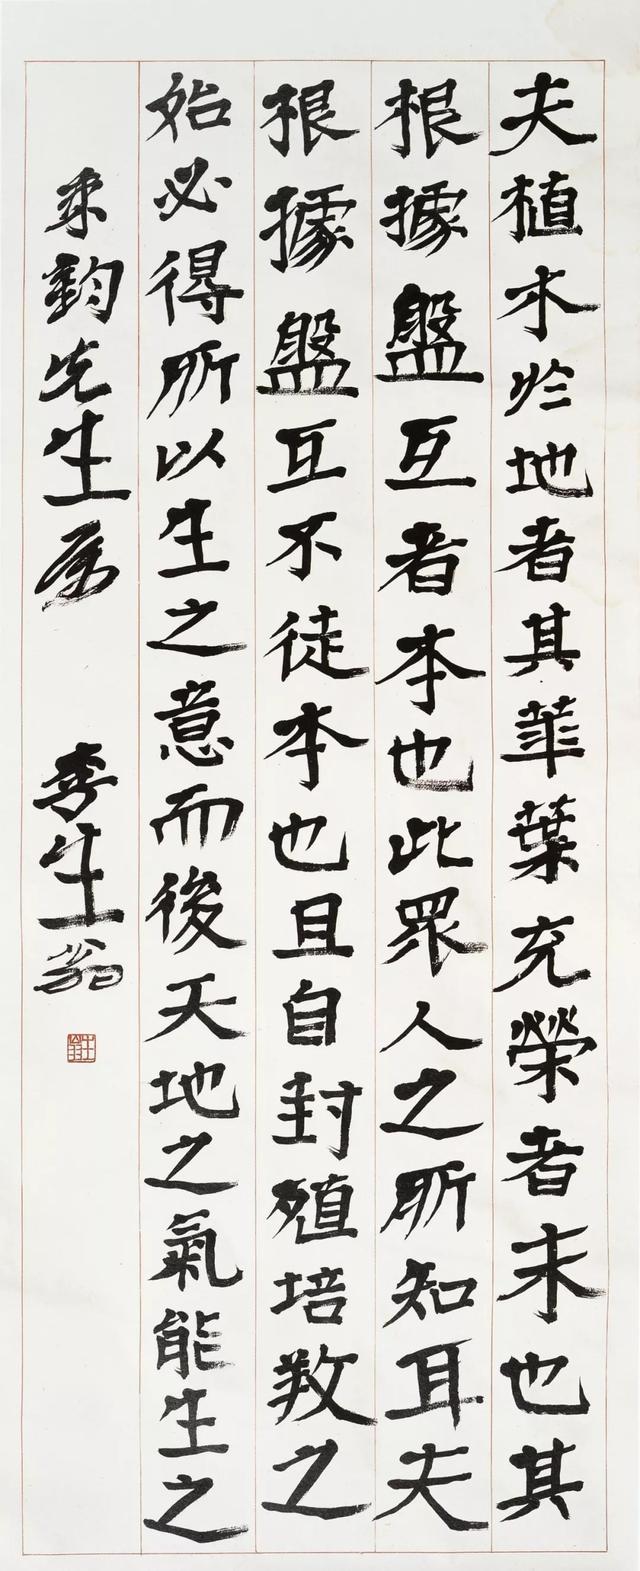 夫植木於地者其華葉充榮者末也其
根據盤互者本也此眾人之所知耳夫
根據盤互不徒本也且自封殖培𢼝之
始必得所以生之意而後天地之氣能生之
秉鈞先生属 李生翁
生翁